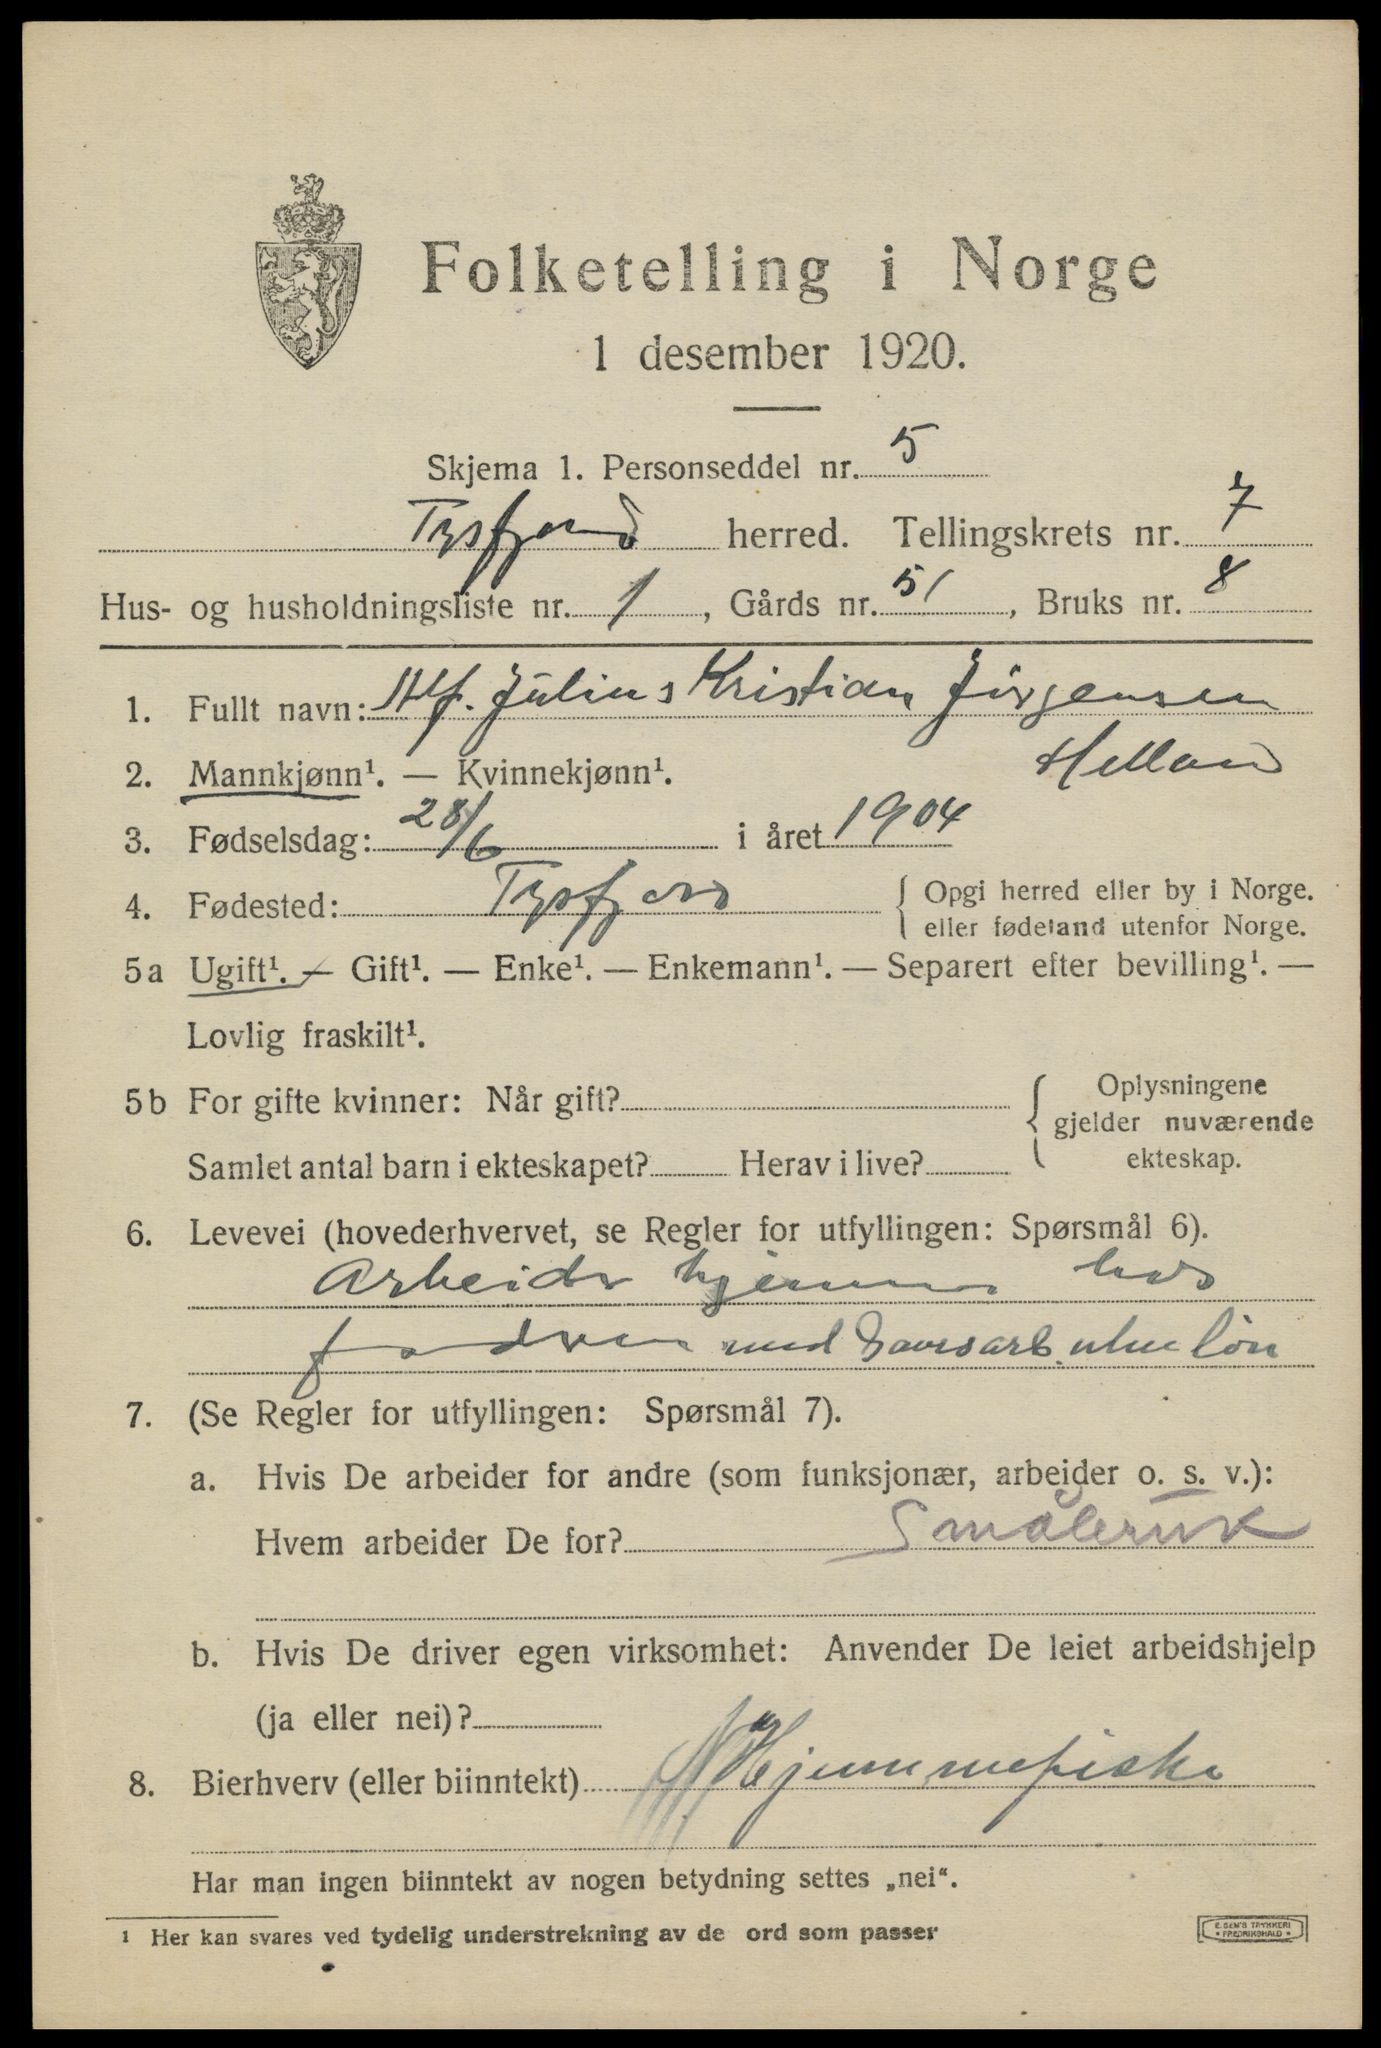 Folketelling i Norge
1 desember 1920.
Skjema 1. Personseddel nr. 5
Tysfjord herred. Tellingskrets nr. 7
Hus- og husholdningsliste nr. 1, Gårds nr. 51, Bruks nr. 8
1. Fullt navn: Alf. Julius Kristian Jörgensen
Helland
2. Mannkjønn¹. — Kvinnekjønn¹.
3. Fødselsdag: 28/6 i året 1904
4. Fødested: Tysfjord { Opgi herred eller by i Norge.
eller fødeland utenfor Norge.
5a Ugift¹. — Gift¹. — Enke¹. — Enkemann¹. — Separert efter bevilling¹. —
Lovlig fraskilt¹.
5b For gifte kvinner: Når gift? { Oplysningene
gjelder nuværende
ekteskap.
Samlet antal barn i ekteskapet? Herav i live?
6. Levevei (hovederhvervet, se Regler for utfyllingen: Spørsmål 6).
Arbeider hjemme hos
fadren med Gaardsarb. uten lön
7. (Se Regler for utfyllingen: Spørsmål 7).
a. Hvis De arbeider for andre (som funksjonær, arbeider o. s. v.):
Hvem arbeider De for? Småbruk
b. Hvis De driver egen virksomhet: Anvender De leiet arbeidshjelp
(ja eller nei)?
8. Bierhverv (eller biinntekt) Hjemmefiske
Har man ingen biinntekt av nogen betydning settes „nei“.
¹ Her kan svares ved tydelig understrekning av de ord som passer
E. SEM'S TRYKKERI
• FREDRIKSHALD •